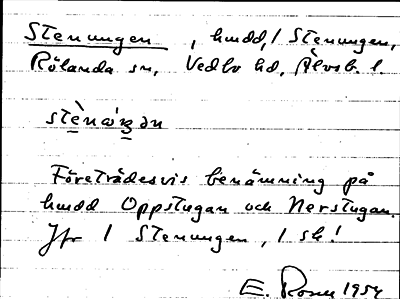 Stenungen, hmdd, / Stenungen,
Rölanda sn, Vedbo hd, Älvsb. l.
stènωʹʒən
Företrädesvis benämning på
hmdd Oppstugan och Nerstugan.
Jfr / Stenungen, / sk!
E. 1954